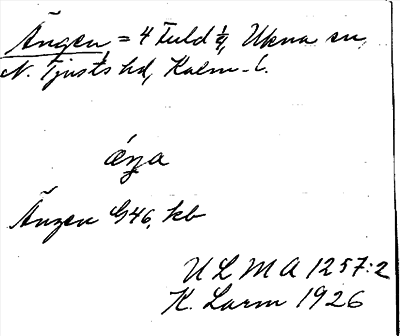 Ängen = 4 Fuld 1/4, Ukna sn,
N. Tjusts hd, Kalm. l.
Ängen G46, kb
ULMA 1257:2
K. Larm 1926